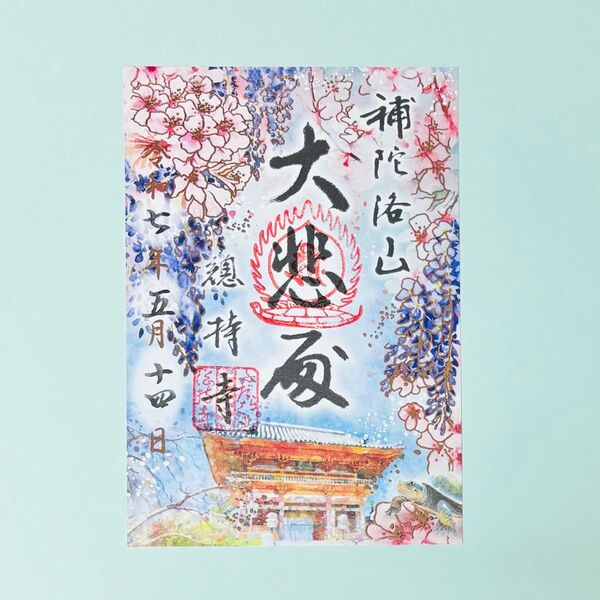 補陀洛山
大悲殿
總持寺
令和七年五月十四日